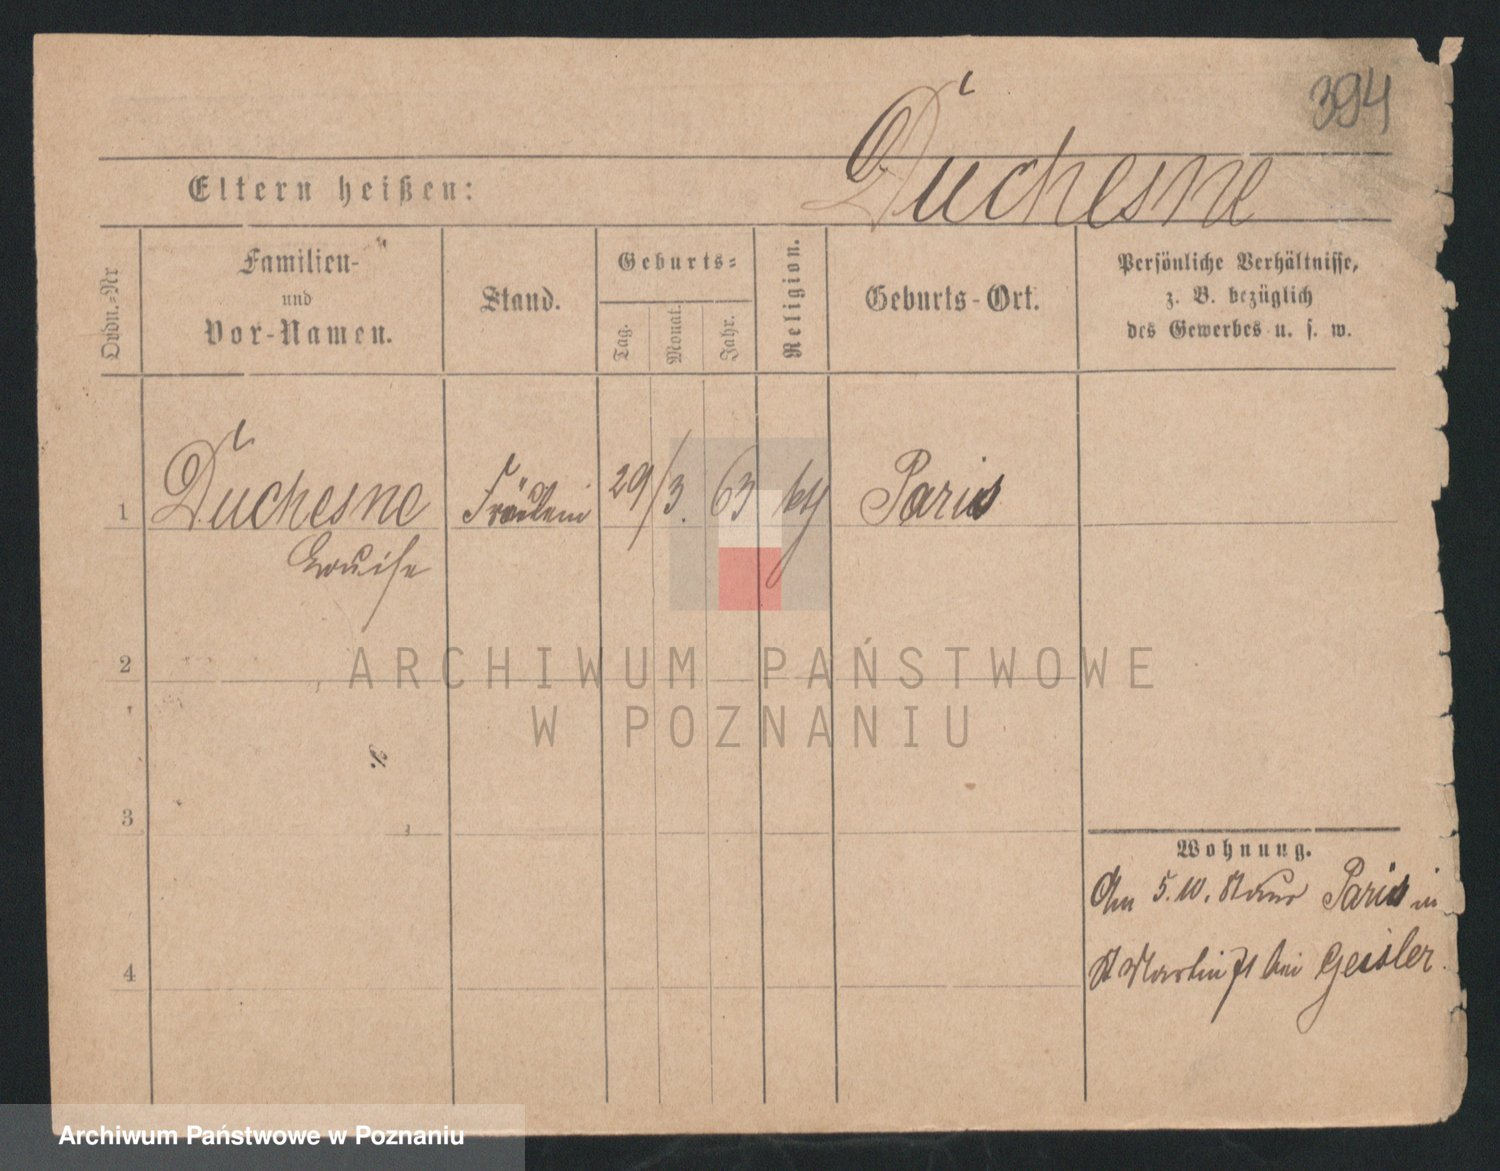 394
Duchesne
Eltern heißen:
Ordn.-Nr
Familien-
und
Vor-Namen.
Stand.
Geburts-
Tag.
Monat.
Jahr.
Religion.
Geburts-Ort.
Persönliche Verhältnisse,
z. B. bezüglich
des Gewerbes u. s. w.
1 Duchesne Fräulein 29/3. 63 Paris
Louise
2
ARCHIWUM PAŃSTWOWE
W POZNANIU
3
Wohnung.
5.10. Paris in
4
St Martin 71 bei Geisler.
Archiwum Państwowe w Poznaniu